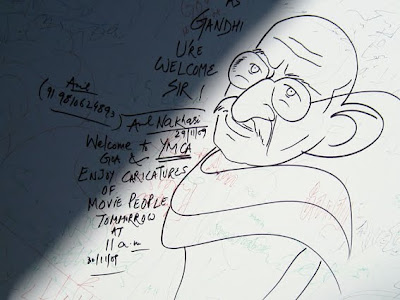 AS
GANDHI
U'RE
WELCOME
SIR !
Anil
(91 9810624893
Anil Nakhasi
29/11/09
Welcome to YMCA
GOA &
ENJOY CARICATURES
OF
MOVIE PEOPLE
TOMMARROW
AT
11 a.m
30/11/09